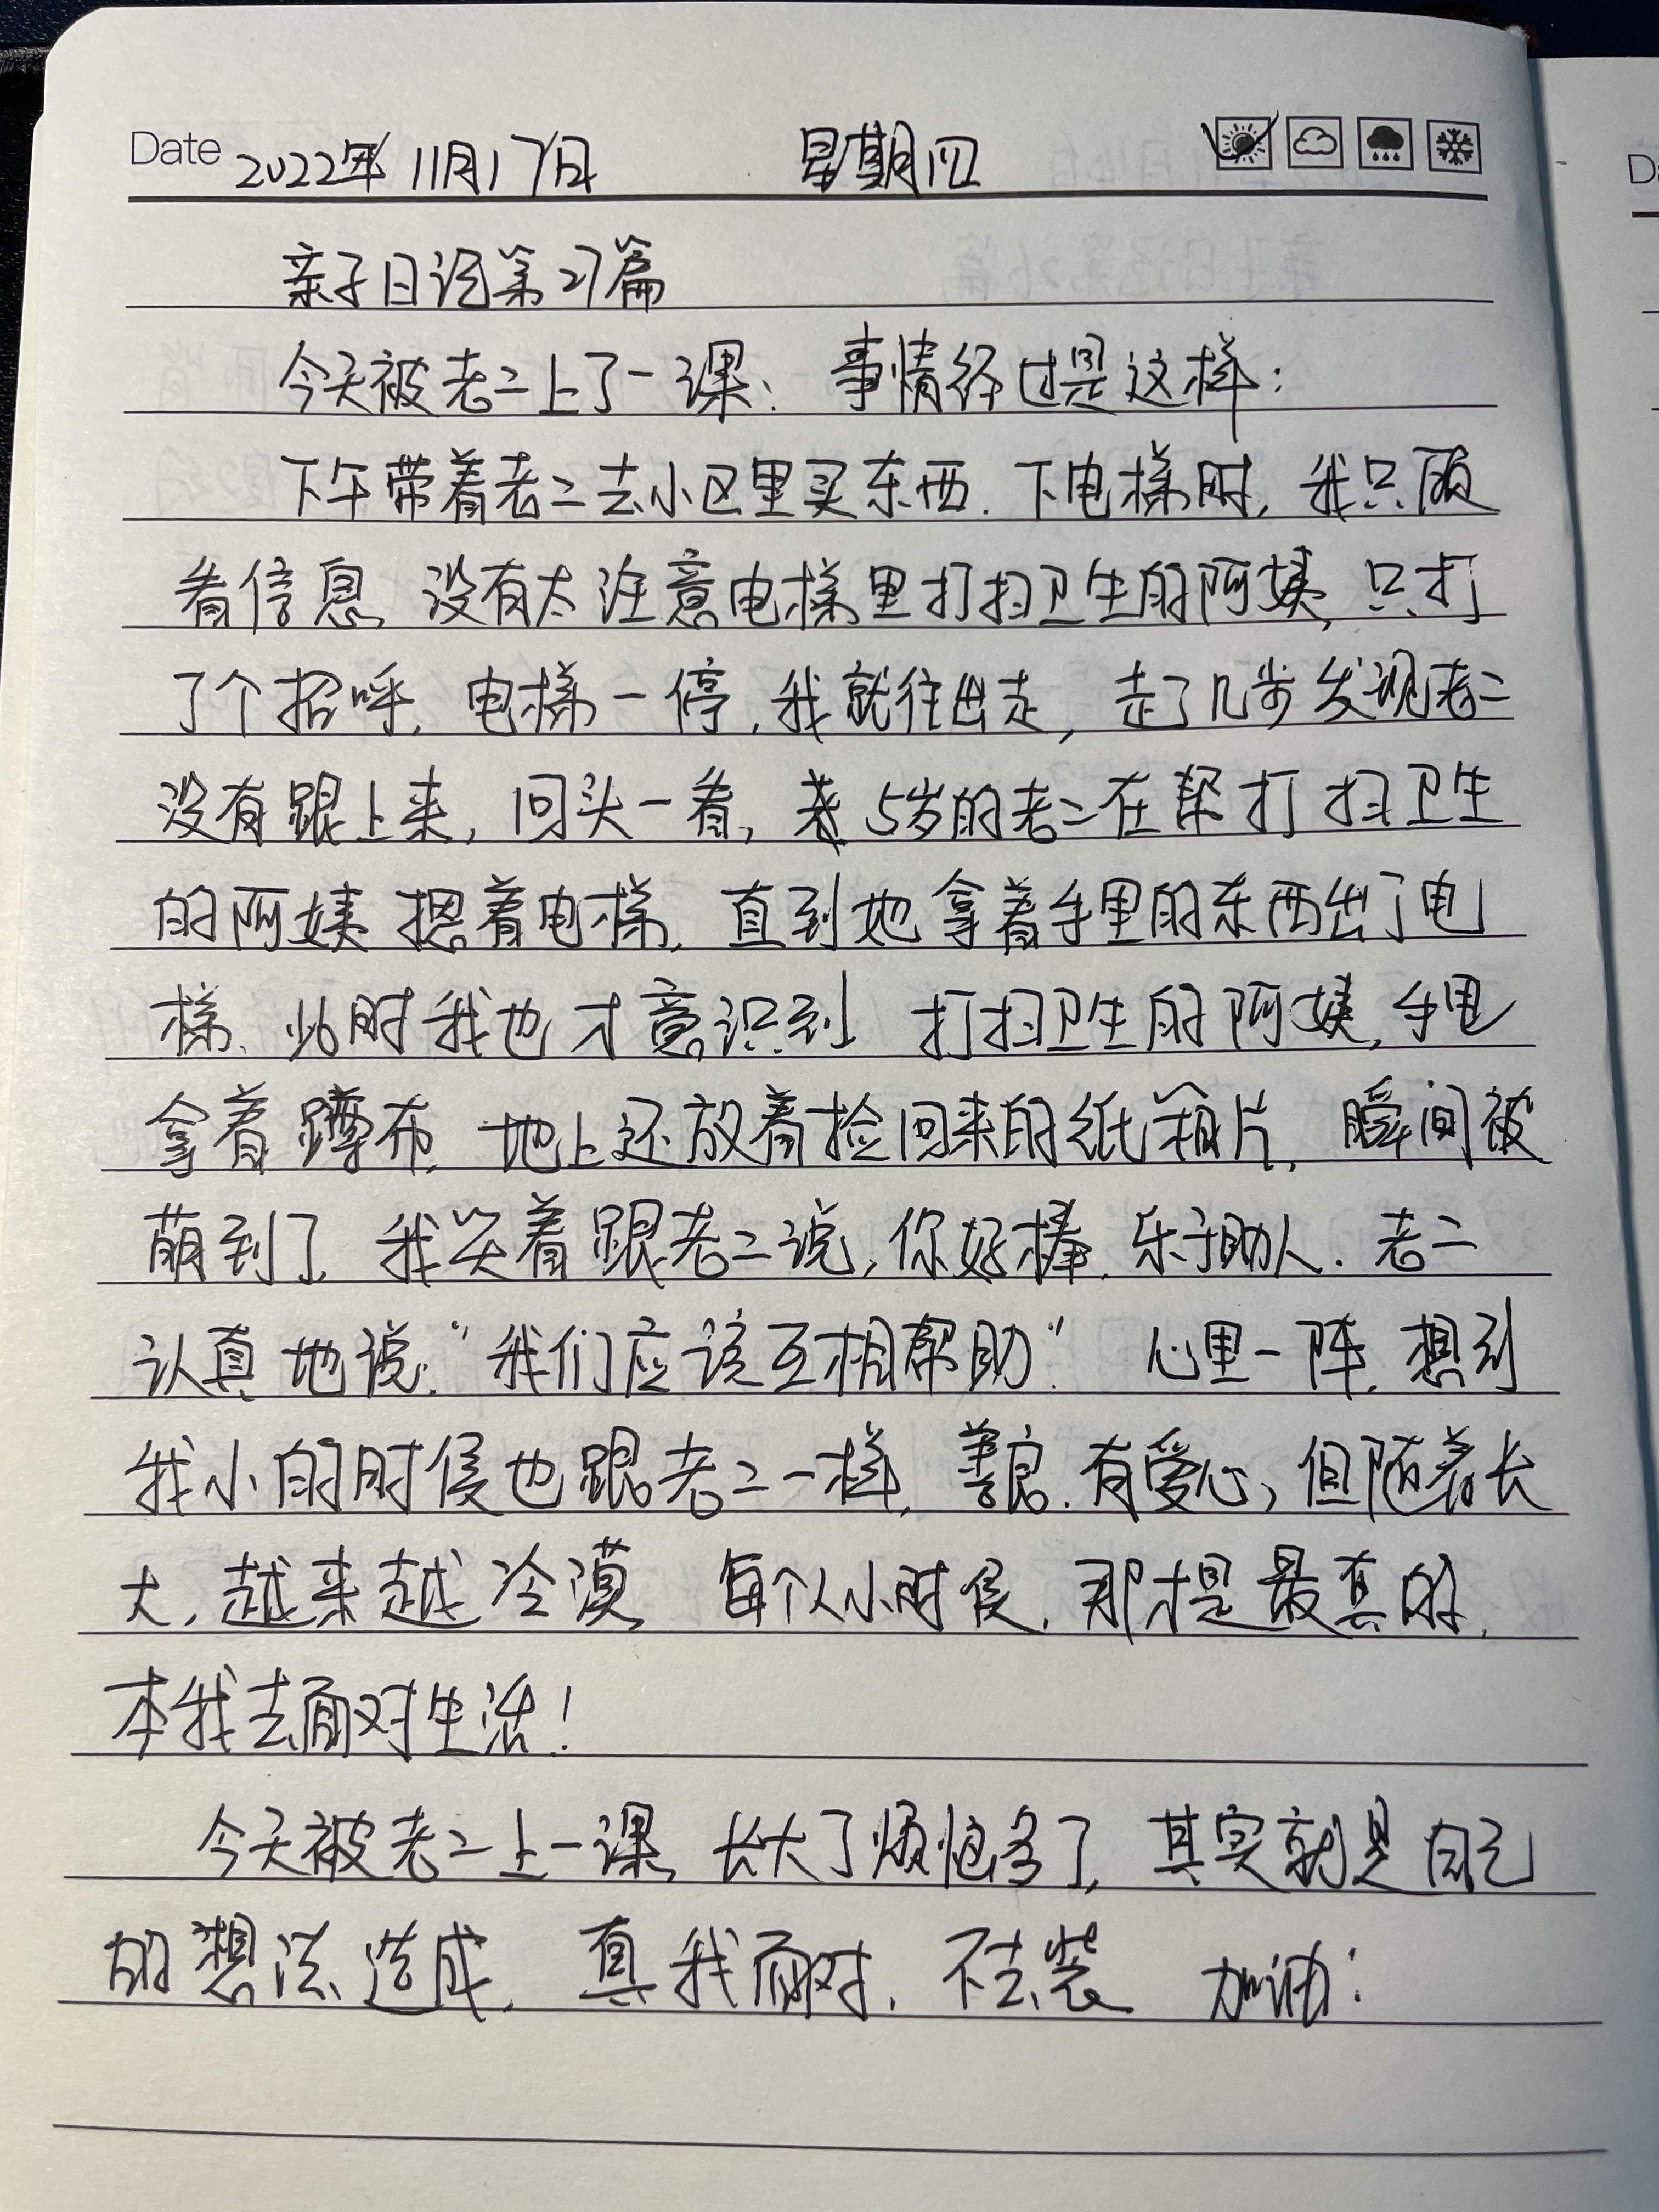 Date 2022年11月17日 星期四
亲子日记第27篇
今天被老二上了一课、事情经过是这样：
下午带着老二去小区里买东西.下电梯时,我只顾
看信息,没有太注意电梯里打扫卫生的阿姨,只打
了个招呼,电梯一停,我就往出走,走了几步发现老二
没有跟上来,回头一看,5岁的老二在帮打扫卫生
的阿姨摁着电梯,直到她拿着手里的东西出了电
梯、此时我也才意识到 打扫卫生的阿姨,手里
拿着蹲布,地上还放着捡回来的纸箱片,瞬间被
萌到了,我笑着跟老二说,你好棒,乐于助人.老二
认真地说:“我们应该互相帮助” 心里一阵,想到
我小的时侯也跟老二一样,善良.有爱心,但随着长
大,越来越冷漠,每个人小时侯,那才是最真的,
本我去面对生活!
今天被老二上一课,长大了烦恼多了,其实就是自己
的想法造成,真我面对,不去装 加油!
Da